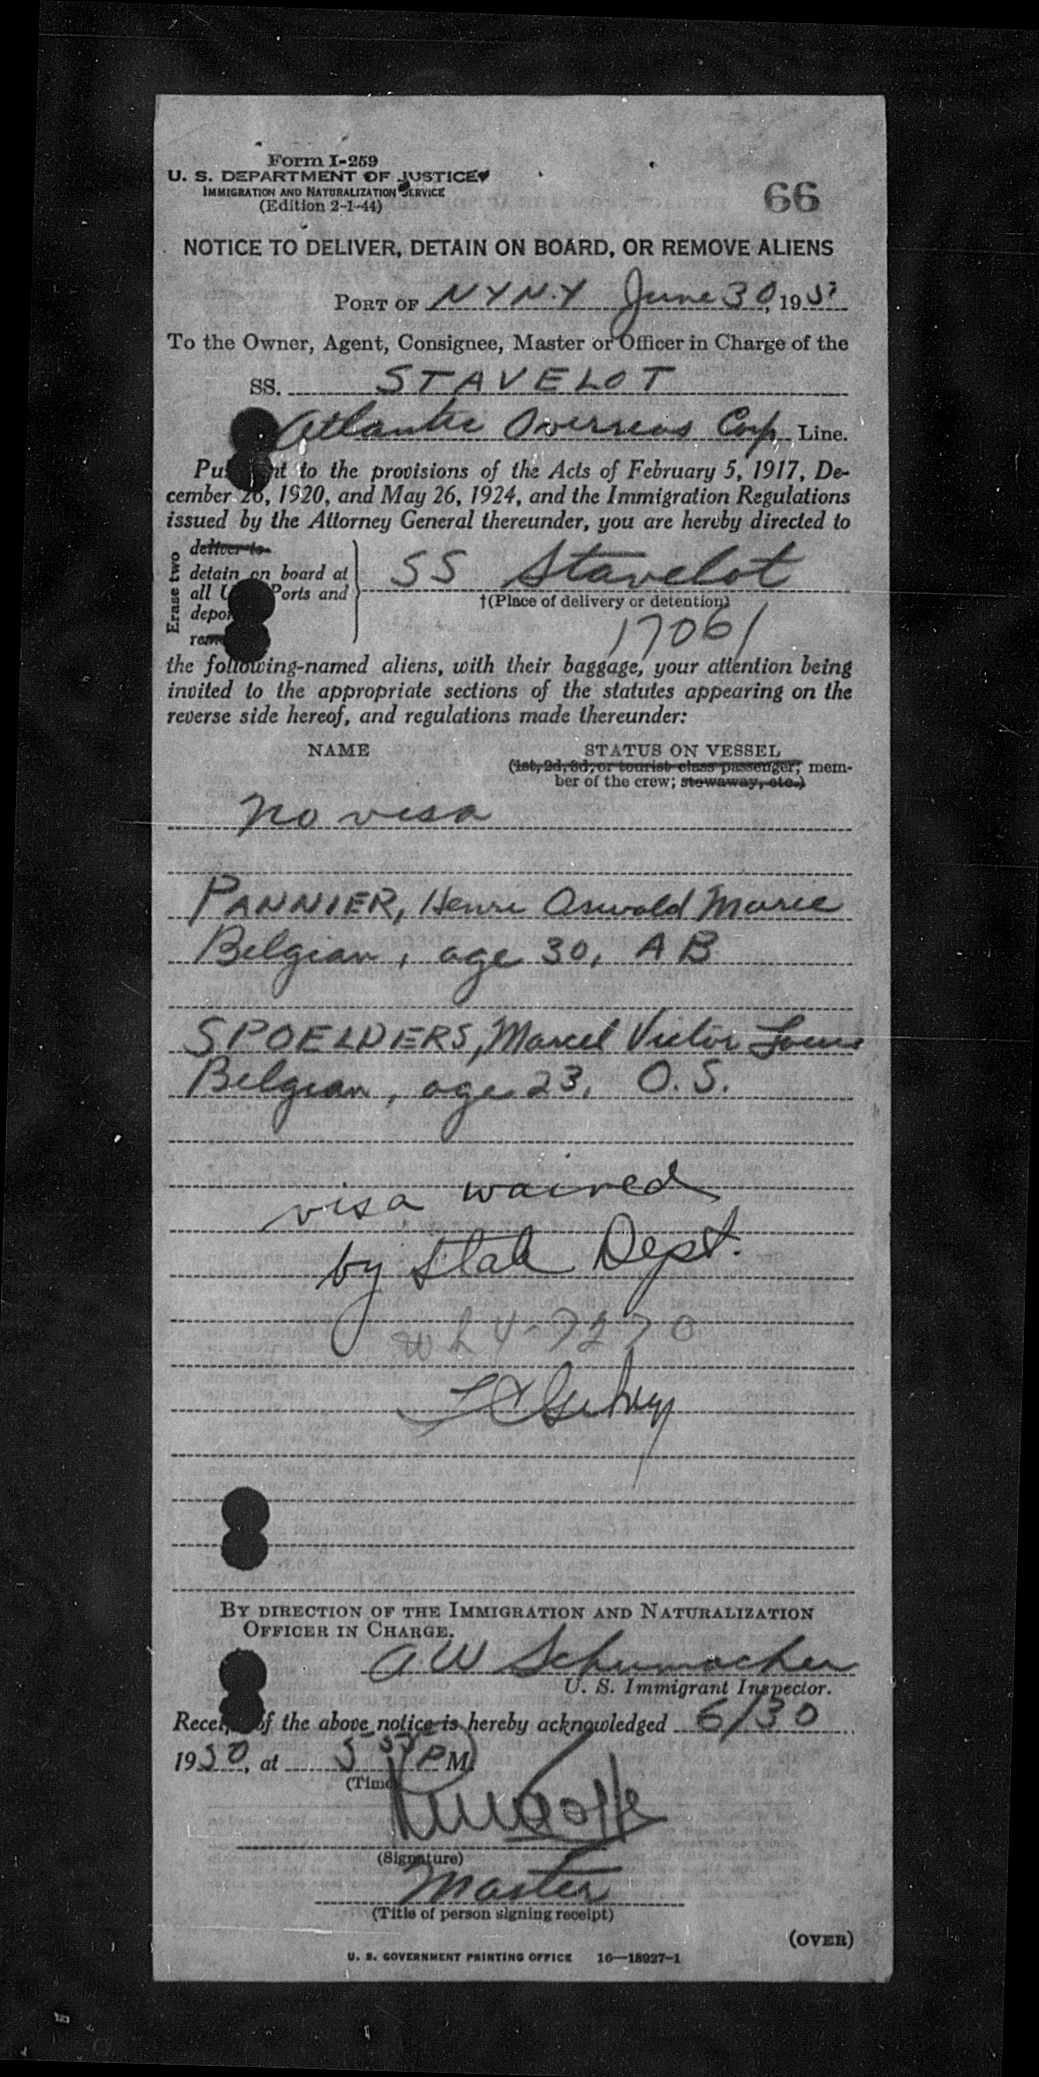 Form I-259
U. S. DEPARTMENT OF JUSTICE
IMMIGRATION AND NATURALIZATION SERVICE
(Edition 2-1-44)
66
NOTICE TO DELIVER, DETAIN ON BOARD, OR REMOVE ALIENS
PORT OF NYN.Y June 30, 195
To the Owner, Agent, Consignee, Master or Officer in Charge of the
SS. STAVELOT
Atlantic Overseas Corp Line.
Pu nt to the provisions of the Acts of February 5, 1917, De-
cember 26, 1920, and May 26, 1924, and the Immigration Regulations
issued by the Attorney General thereunder, you are hereby directed to
Erase two
deliver to
detain on board at
all Ports and
depor
rem
SS Stavelot
†(Place of delivery or detention)
17061
the following-named aliens, with their baggage, your attention being
invited to the appropriate sections of the statutes appearing on the
reverse side hereof, and regulations made thereunder:
NAME STATUS ON VESSEL
(1st, 2d, 3d, or tourist class passenger; mem-
ber of the crew; stowaway, etc.)
No visa
PANNIER, Henri Oswald Marie
Belgian, age 30, AB
SPOELDERS, Marcel Victor Louis
Belgian, age 23, O.S.
visa waived
by State Dept.
WH 4-7270
BY DIRECTION OF THE IMMIGRATION AND NATURALIZATION
OFFICER IN CHARGE.
AW Schumacher
U. S. Immigrant Inspector.
Receipt of the above notice is hereby acknowledged 6/30
1950, at 5 55 PM
(Time)
(Signature)
Master
(Title of person signing receipt)
(OVER)
U. S. GOVERNMENT PRINTING OFFICE 16—18927-1